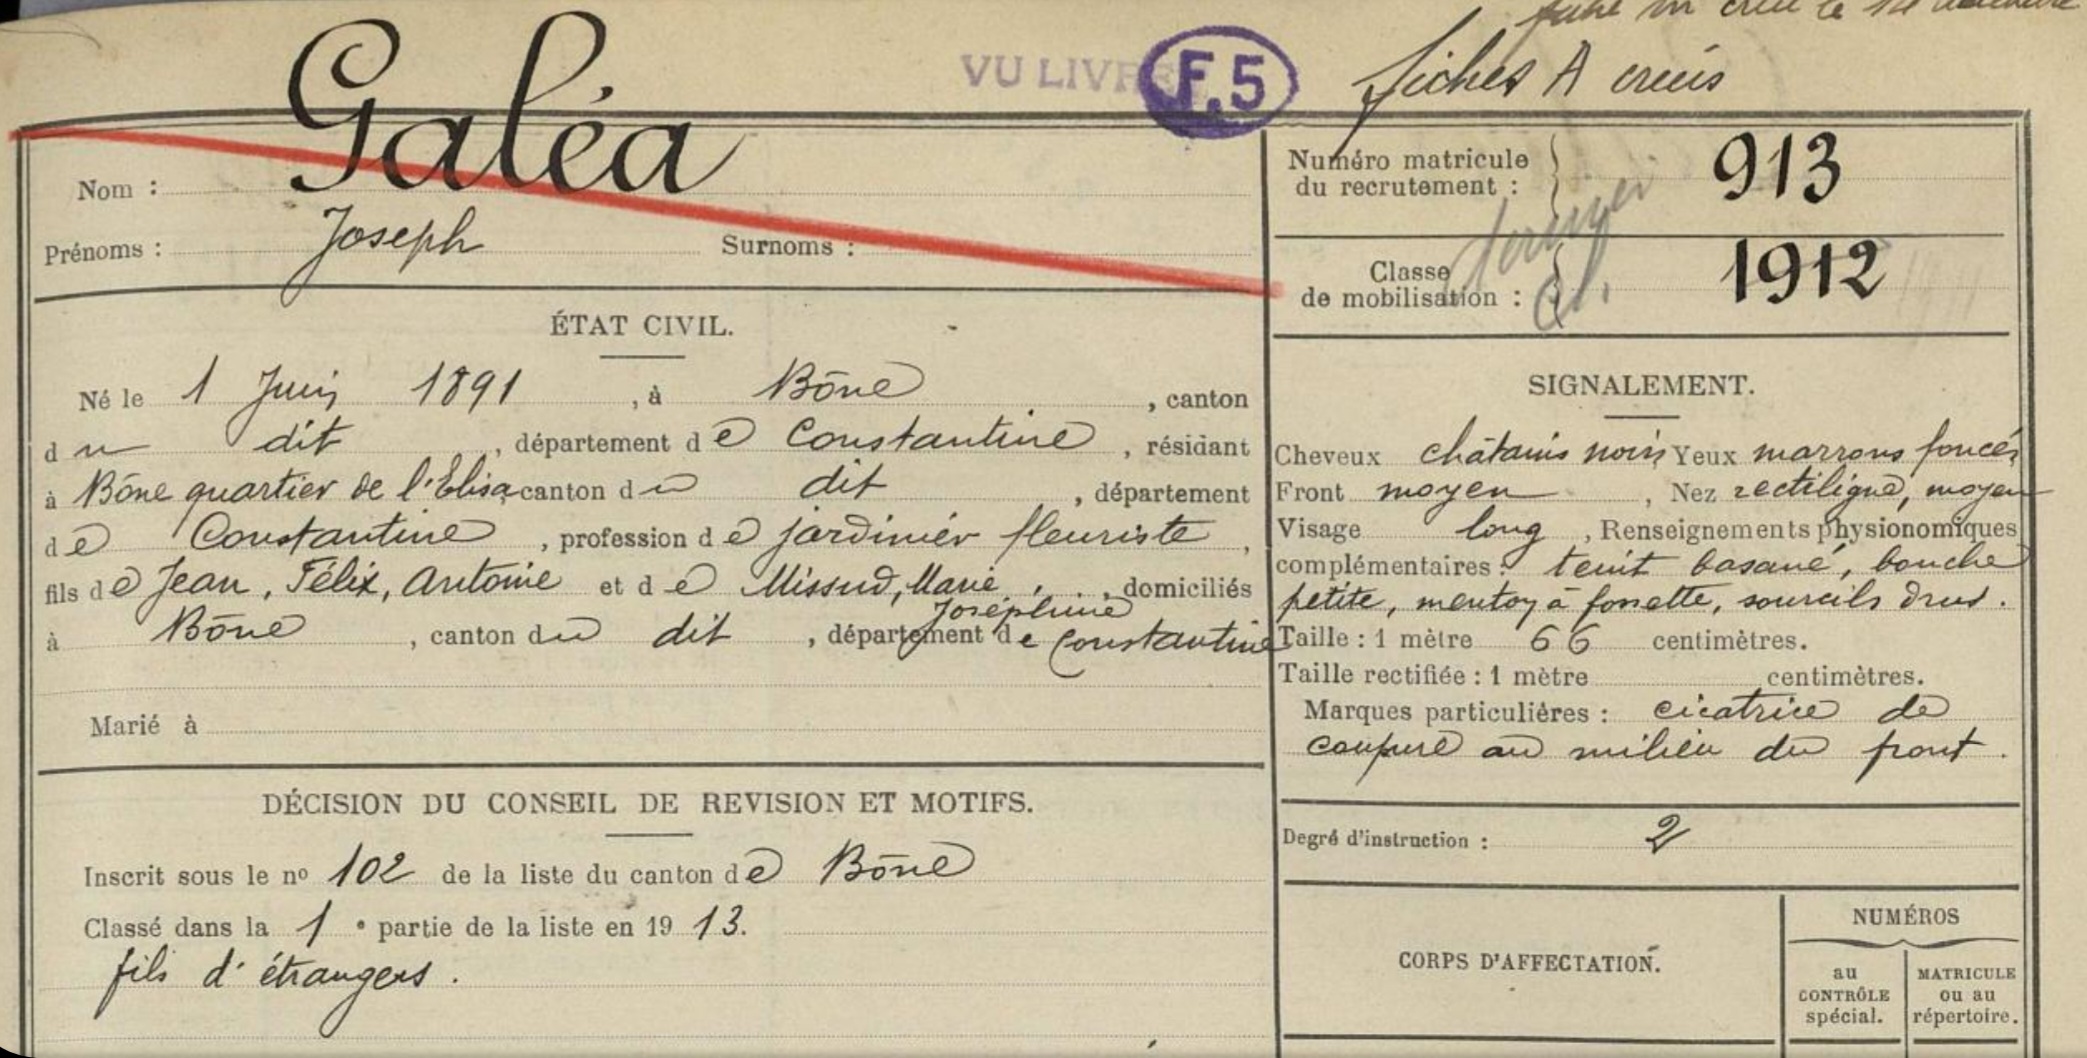 fiches A créés
VU LIVRE
F.5
Nom : Galéa
Prénoms : Joseph Surnoms :
ÉTAT CIVIL.
Né le 1 Juin 1891, à Bône, canton
du dit, département de Constantine, résidant
à Bône quartier de l'Elisa canton du dit, département
de Constantine, profession de jardinier fleuriste,
fils de Jean, Félix, Antoine et de Missud, Marie, domiciliés
Joséphine
à Bône, canton du dit, département de Constantine
Marié à
DÉCISION DU CONSEIL DE REVISION ET MOTIFS.
Inscrit sous le nº 102 de la liste du canton de Bône
Classé dans la 1e partie de la liste en 1913.
fils d'étrangers.
Numéro matricule
du recrutement : 913
Classe
de mobilisation : 1912
SIGNALEMENT.
Cheveux châtains noirs, Yeux marrons foncés,
Front moyen, Nez rectiligne, moyen
Visage long, Renseignements physionomiques
complémentaires : teint basané, bouche
petite, menton à fossette, sourcils drus.
Taille : 1 mètre 66 centimètres.
Taille rectifiée : 1 mètre centimètres.
Marques particulières : cicatrice de
coupure au milieu du front.
Degré d'instruction : 2
CORPS D'AFFECTATION.
NUMÉROS
au
CONTRÔLE
spécial.
MATRICULE
ou au
répertoire.